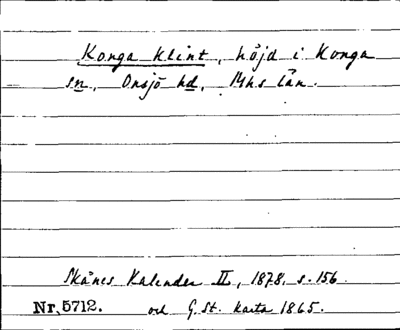 Konga klint, höjd i Konga
sn, Onsjö hd, Mhs län.
Skånes Kalender II, 1878, s. 156
Nr. 5712. och G. St. karta 1865.